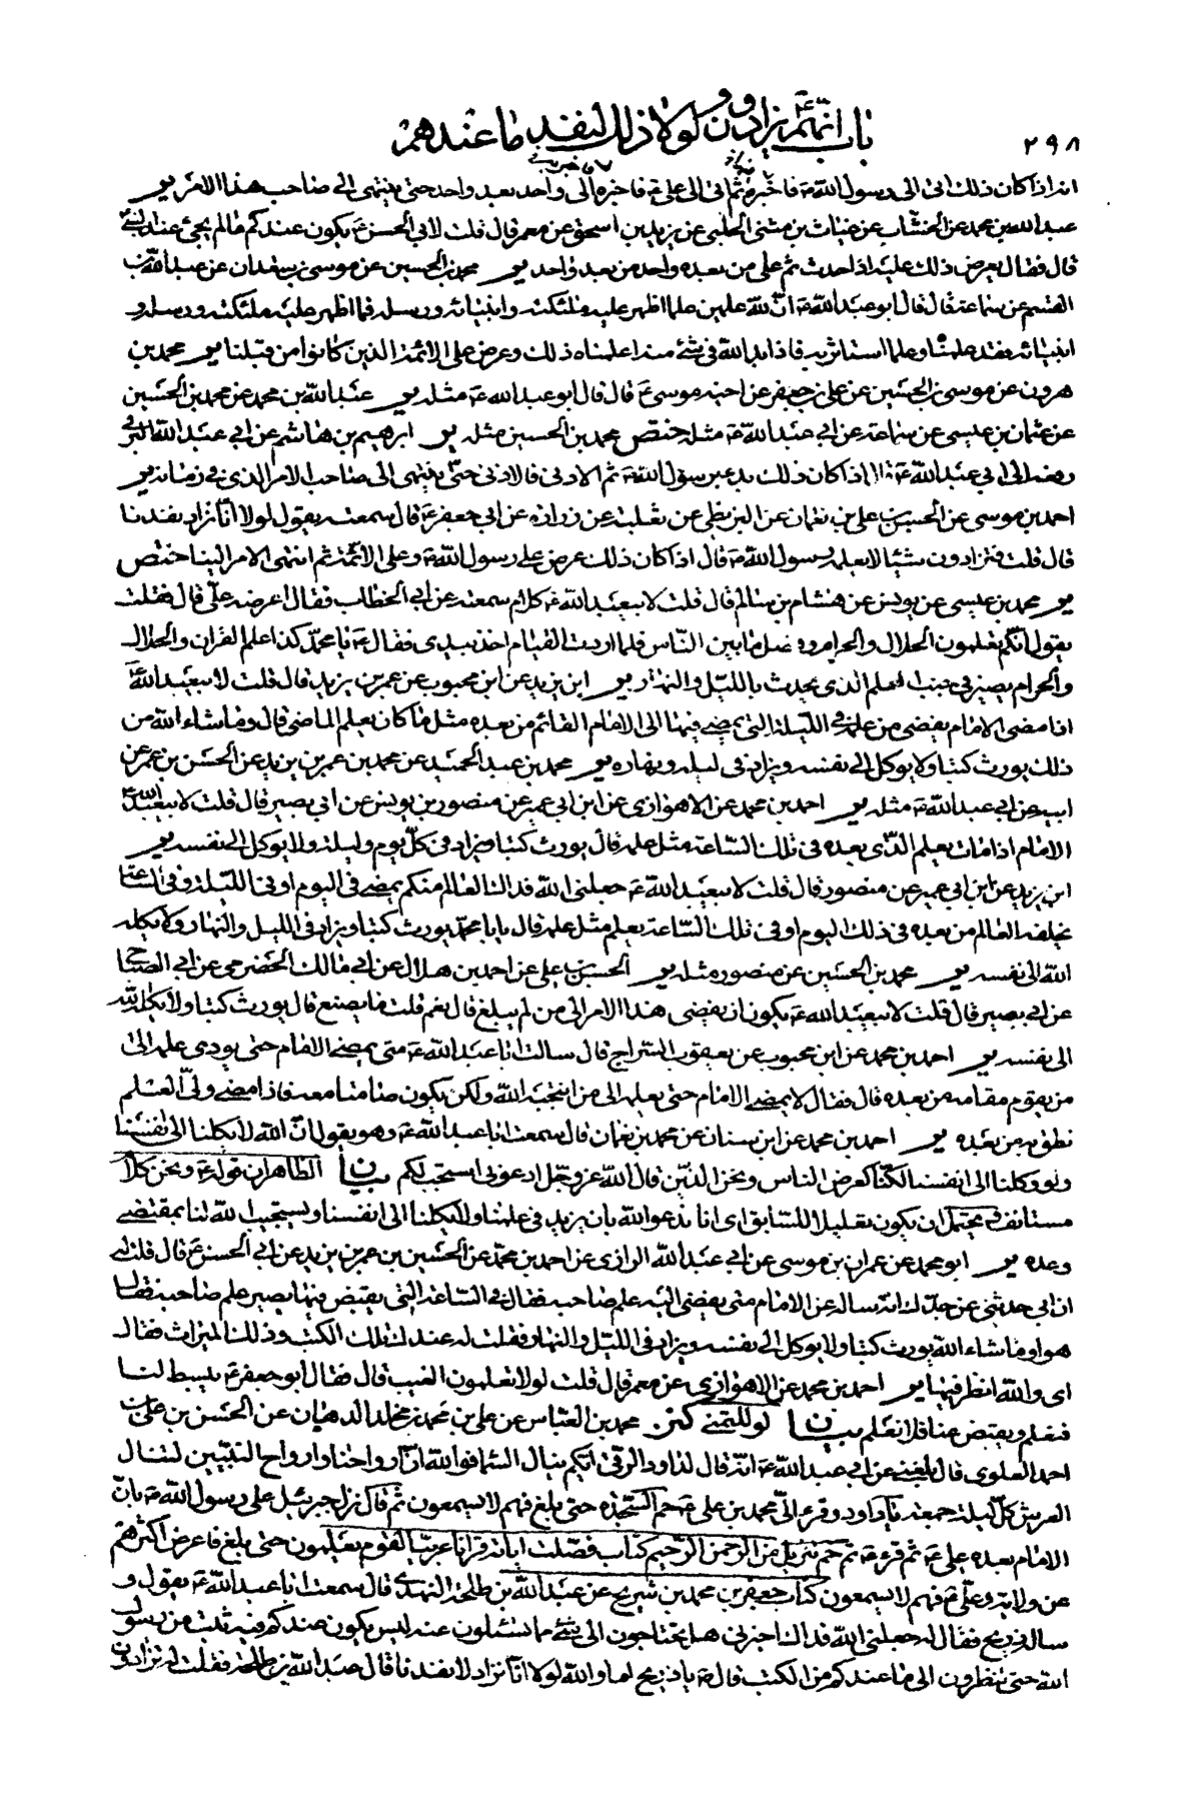 باب انهم ع يزادون ولولا ذلك لنفد ما عندهم
٢٩٨
انه اذا كان ذلك اتى الى رسول الله ص فاخبره ثم اتى الى على ع فاخبره الى واحد بعد واحد حتى ينتهى الى صاحب هذا الامر ير
عبدالله بن محمد عن الخشاب عن غياث بن مثنى الحلبى عن يزيد بن اسحق عن معمر قال قلت لابى الحسن ع يكون عندكم ما لم يجئ عند النبى
قال فقال يعرض ذلك عليه اذا حدث ثم على من بعده واحد من بعد واحد ير محمد بن الحسين عن موسى بن سعدان عن عبدالله بن
القسم عن سماعة قال قال ابو عبد الله ع ان لله علمين علما اظهر عليه ملئكته وانبيائه ورسله فما اظهر عليه ملئكته ورسله و
انبيائه فقد علمناه وعلما استاثر به فاذا بدا لله فى شئ منه اعلمناه ذلك وعرض على الائمة الذين كانوا من قبلنا ير محمد بن
هرون عن موسى بن الحسين عن على بن جعفر عن اخيه موسى ع قال قال ابو عبد الله ع مثله ير عبدالله بن محمد عن محمد بن الحسين
عن عثمان بن عيسى عن سماعة عن ابى عبد الله ع مثله ختص محمد بن الحسين مثله ير ابرهيم بن هاشم عن ابى عبد الله البرقى
رفعه الى ابى عبد الله ع قال اذا كان ذلك بدء برسول الله ص ثم الادنى فالادنى حتى ينتهى الى صاحب الامر الذى فى زمانه ير
احمد بن موسى عن الحسن بن على بن نعمان عن البزنطى عن ثعلبة عن زرارة عن ابى جعفر ع قال سمعته يقول لولا انا نزاد نفدنا
قال قلت فتزادون شيئا لا يعلمه رسول الله ص قال اذا كان ذلك عرض على رسول الله ص وعلى الائمة ثم انتهى الامر الينا ختص
ير محمد بن عيسى عن يونس عن هشام بن سالم قال قلت لابيعبد الله ع كلام سمعته عن ابى الخطاب فقال اعرضه على قال فقلت
يقول انكم تعلمون الحلال والحرام وفصل ما بين الناس فلما اردت القيام اخذ بيدى فقال ع يا محمد كذا علم القران والحلال
والحرام يصير فى جنب العلم الذى يحدث بالليل والنهار ير ابن يزيد عن ابن محبوب عن عمر بن يزيد قال قلت لابيعبد الله ع
اذا مضى الامام يفضى من علمه فى الليلة التى يمضى فيها الى الامام القائم من بعده مثل ما كان يعلم الماضى قال وما شاء الله من
ذلك يورث كتبا ولا يوكل الى نفسه ويزاد فى ليله ونهاره ير محمد بن عبد الحميد عن محمد بن عمر بن يزيد عن الحسن بن عمر عن
ابيه عن ابى عبد الله ع مثله ير احمد بن محمد عن الاهوازى عن ابن ابى عمير عن منصور بن يونس عن ابى بصير قال قلت لابيعبد الله ع
الامام اذا مات يعلم الذى بعده فى تلك الساعة مثل علمه قال يورث كتبا ويزاد فى كل يوم وليلة ولا يوكل الى نفسه ير
ابن يزيد عن ابن ابى عمير عن منصور قال قلت لابيعبد الله ع جعلنى الله فداك العالم منكم يمضى فى اليوم او فى الليلة وفى الساعة
يخلفه العالم من بعده فى ذلك اليوم او فى تلك الساعة يعلم مثل علمه قال يابا محمد يورث كتبا ويزاد فى الليل والنهار ولا يكله
الله الى نفسه ير محمد بن الحسين عن منصور مثله ير الحسن بن على عن احمد بن هلال عن ابى مالك الحضرمى عن ابى الصباح
عن ابى بصير قال قلت لابيعبد الله ع يكون ان يفضى هذا الامر الى من لم يبلغ قال نعم قلت ما يصنع قال يورث كتبا ولا يكله الله
الى نفسه ير احمد بن محمد عن ابن محبوب عن يعقوب السراج قال سالت ابا عبد الله ع متى يمضى الامام حتى يودى علمه الى
من يقوم مقامه من بعده قال فقال لا يمضى الامام حتى يعلمه الى من انتجبه الله ولكن يكون صامتا معه فاذا مضى ولى العلم
نطق به من بعده ير احمد بن محمد عن ابن سنان عن محمد بن نعمان قال سمعت ابا عبد الله ع وهو يقول ان الله لا يكلنا الى انفسنا
ولو وكلنا الى انفسنا لكنا كعرض الناس ونحن الذين قال الله عز وجل ادعونى استجب لكم بيان الظاهر ان قوله ع ونحن كلام
مستانف ويحتمل ان يكون تعليلا للسابق اى انا ندعو الله بان يزيد فى علمنا ولا يكلنا الى انفسنا ويستجيب الله لنا بمقتضى
وعده ير ابو محمد عن عمران بن موسى عن ابى عبد الله الرازى عن احمد بن محمد عن الحسين بن عمر بن يزيد عن ابى الحسن ع قال قلت له
ان ابى حدثنى عن جدك انه ساله عن الامام متى يفضى اليه علم صاحبه فقال فى الساعة التى يقبض فيها يصير علم صاحبه فقال
هو او ما شاء الله يورث كتبا ولا يوكل الى نفسه ويزاد فى الليل والنهار فقلت له عندك تلك الكتب وذلك الميراث فقال
اى والله انظر فيها ير احمد بن محمد عن الاهوازى عن معمر قال قلت لولا تعلمون الغيب قال فقال ابو جعفر ع يبسط لنا
فنعلم ويقبض عنا فلا نعلم بيان لو للتمنى كنز محمد بن العباس عن على بن محمد بن مخلد الدهان عن الحسن بن على بن
احمد العلوى قال بلغنى عن ابى عبد الله ع انه قال لداود الرقى ايكم ينال السما فوالله ان ارواحنا وارواح النبيين لتنال
العرش كل ليلة جمعة يا داود قرء ابى محمد بن على ع حم السجدة حتى بلغ فهم لا يسمعون ثم قال نزل جبرئيل على رسول الله ص بان
الامام بعده على ع ثم قرء ع حم تنزيل من الرحمن الرحيم كتاب فصلت اياته قرانا عربيا لقوم يعلمون حتى بلغ فاعرض اكثرهم
عن ولاية على ع فهم لا يسمعون كتاب جعفر بن محمد بن شريح عن عبد الله بن طلحة النهدى قال سمعت ابا عبد الله ع يقول و
ساله ذريح فقال له جعلنى الله فداك اخبرنى هل يحتاجون الى شئ مما تسئلون عنه ليس يكون عندكم فيه ثبت من رسول
الله حتى تنظرون الى ما عندكم من الكتب قال ع يا ذريح اما والله لولا انا نزاد لانفدنا قال عبد الله بن طلحة فقلت له تزادون